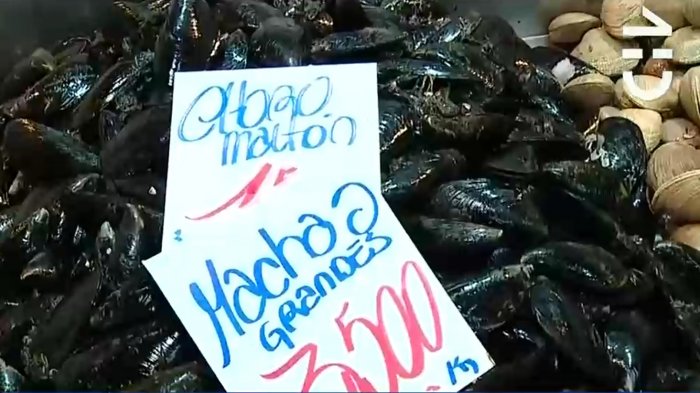 Choro
maltón
Macha
GRANDES
3.500
Kg